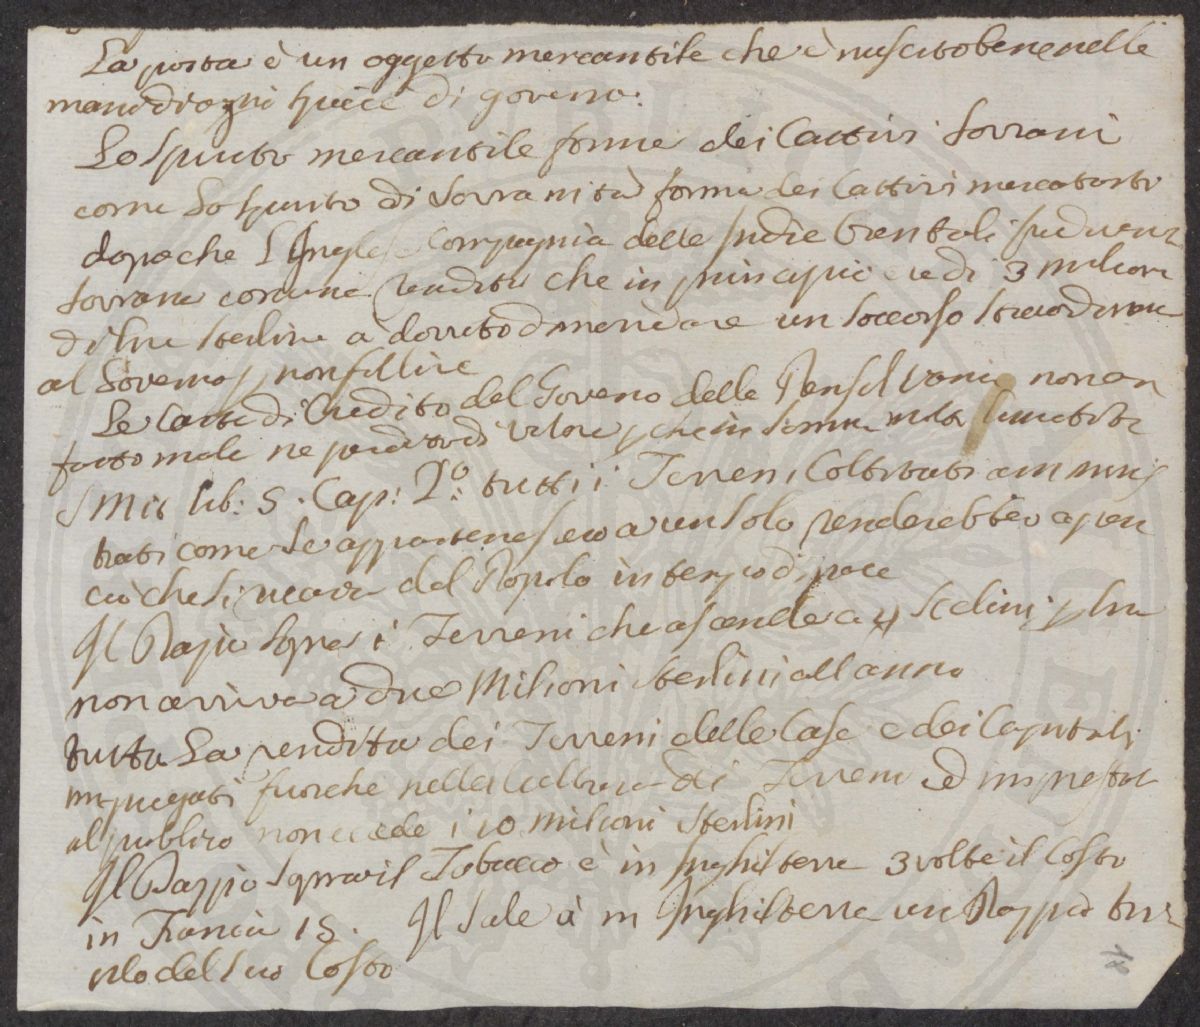 La posta è un oggetto mercantile che è riuscito bene nelle
mani di ogni spiece di governo.
Lo spirito mercantile forma dei Cattivi Sovrani
come Lo spirito di Sovranità forma dei Cattivi mercatanti
dopo che L'Inglese Compagnia delle Indie Orientali
Sovrana con una rendita che in principio era di 3 milioni
di lire sterline a dovuto domandare un soccorso straordinario
al Governo p non fallire
Le Carte di Credito del Governo della Pensilvania non an
fatto male ne perduto di valore
Smit lib: 5. Cap: 2º: tutti i Terreni Coltivati amminis
trati come se appartenessero a un solo renderebbero appena
ciò che si ricava dal Popolo in tempo di pace
Il Dazio sopra i Terreni che ascende a 4 Stelini p lira
non arriva a due Milioni sterlini all anno
tutta La rendita dei Terreni delle Case e dei Capitali
impiegati fuorche nella Coltura di Terreni ed imprestati
al publico non eccede i 10 milioni sterlini
Il Dazzio sopra il Tobacco è in Inghilterra 3 volte il Costo
in Francia 15. Il Sale à in Inghilterra un Dazzio tri
plo del suo Costo